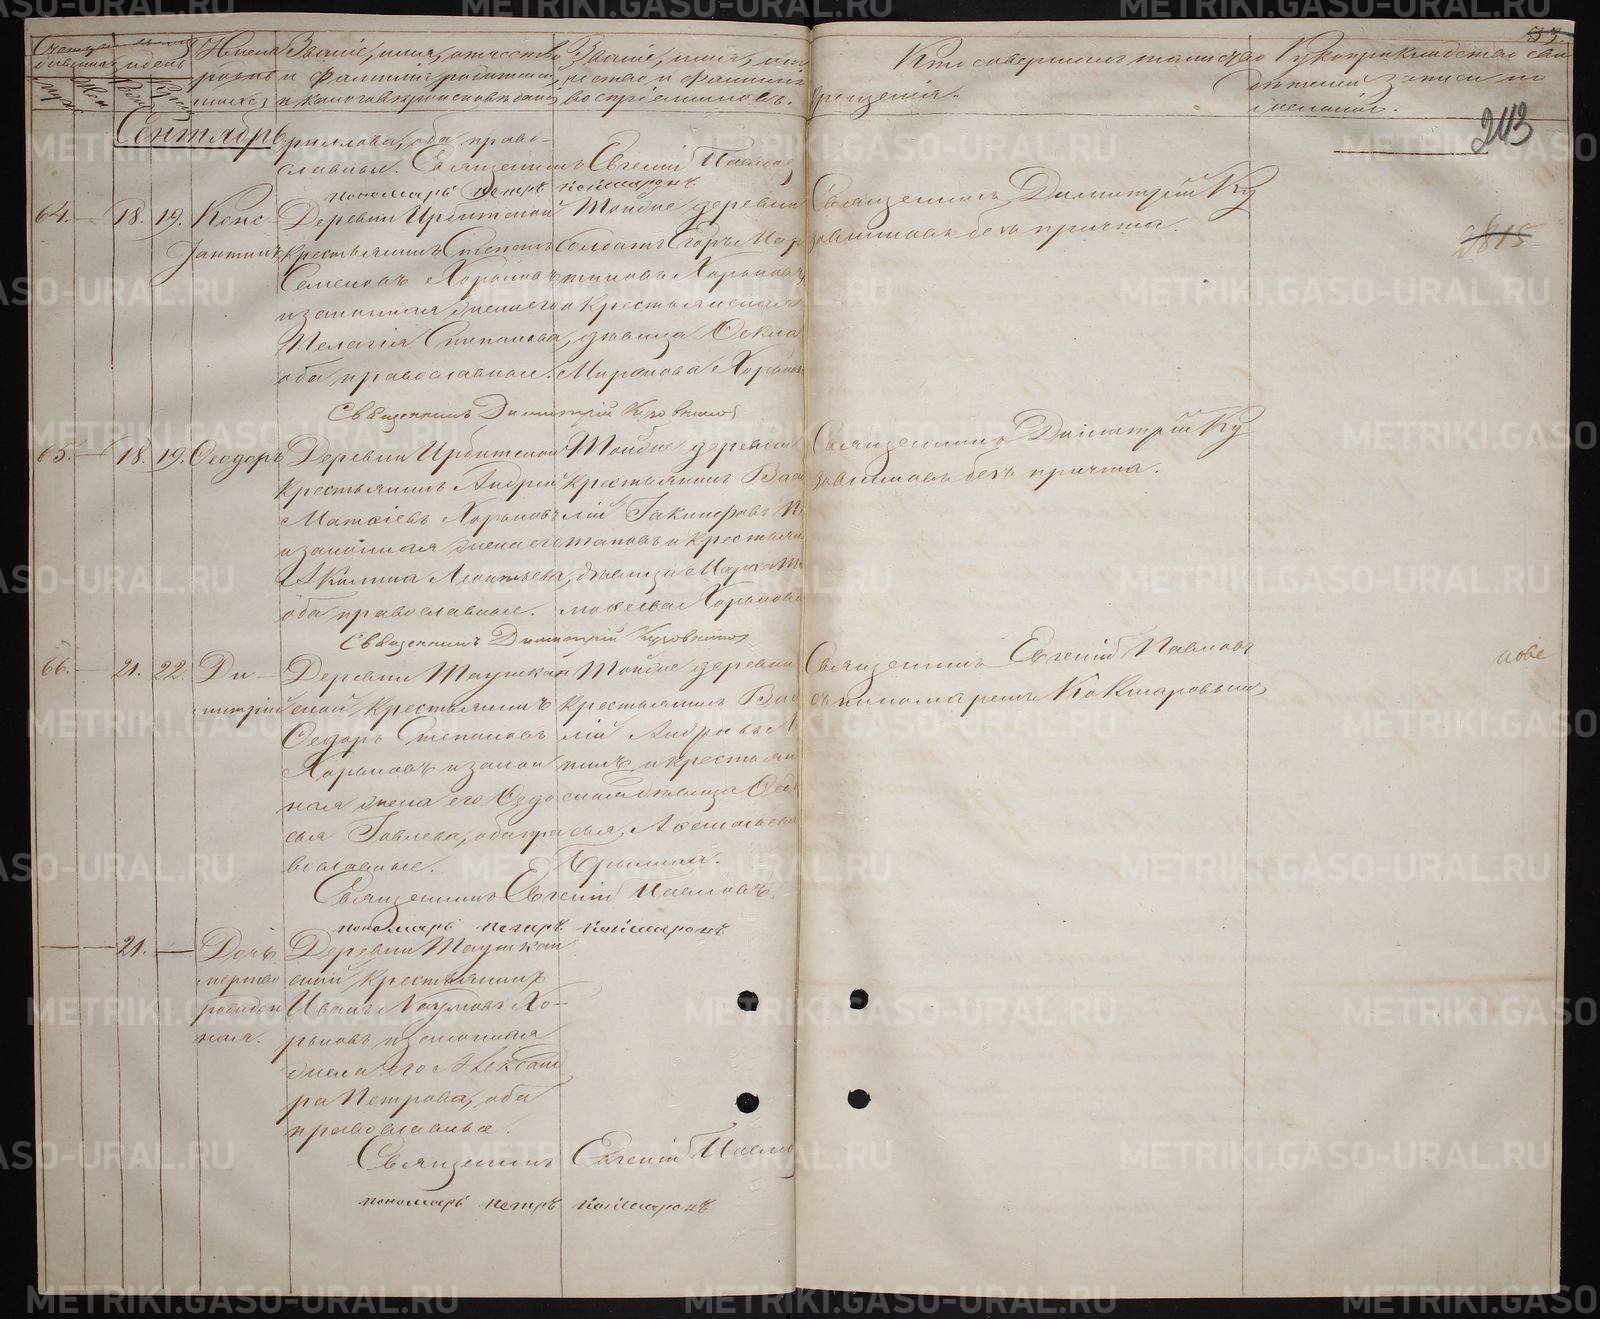 Имена
Званіе, имя, отчество
и фамилія родителей,
и какого вѣроисповѣданія
Званіе, имя, от
чество и фамилія
воспріемниковъ.
Кто совершалъ таинство
крещенія.
Рукоприкладство сви
дѣтелей записи по
желанію.
243
Сентябрь
рилова, оба право-
славные. Священникъ Евгеній Павлов
пономарь Петръ Кокшаровъ
64. — 18. 19. Конс-
тантинъ
Деревни Ирбитской
крестьянинъ Степанъ
Семеновъ Хорьковъ
и законная жена его
Пелагія Степанова,
оба православные.
Тойже деревни
солдатъ Егоръ Мар
тиновъ Хорьковъ
и крестьянская
дѣвица Ѳекла
Миронова Хорьков
Священникъ Димитрій Ку
зовниковъ безъ причта.
2815
Священникъ Димитрій Кузовников
65. — 18. 19. Ѳеодоръ
Деревни Ирбитской
крестьянинъ Андрей
Матѳіевъ Хорьковъ
и законная жена его
Акилина Леонтьева,
оба православные.
Тойже деревни
крестьянинъ Васи
лій
и крестьян
дѣвица Марѳа Ти
моѳеева Хорькова
Священникъ Димитрій Ку
зовниковъ безъ причта.
Священникъ Димитрій Кузовников
66. — 21. 22. Ди-
митрій
Деревни Таушкан
ской крестьянинъ
Ѳедоръ Степановъ
Хорьковъ и закон
ная жена его Ѳедо
сья Іовлева, оба пра
вославные.
Тойже деревни
крестьянинъ Васи
лій Андреевъ
и крестьян
ская дѣвица
Священникъ Евгеній Павловъ
съ пономаремъ Кокшаровымъ
Священникъ Евгеній Павловъ.
пономарь Петръ Кокшаровъ
— 21. — Дочь
мертво
рожден
ная.
Деревни Таушкан
ской крестьянинъ
Иванъ Наумовъ Хо-
рьковъ и законная
жена его Александ
ра Петрова, оба
православные.
Священникъ Евгеній Павлов
пономарь Петръ Кокшаровъ
METRIKI.GASO-URAL.RU